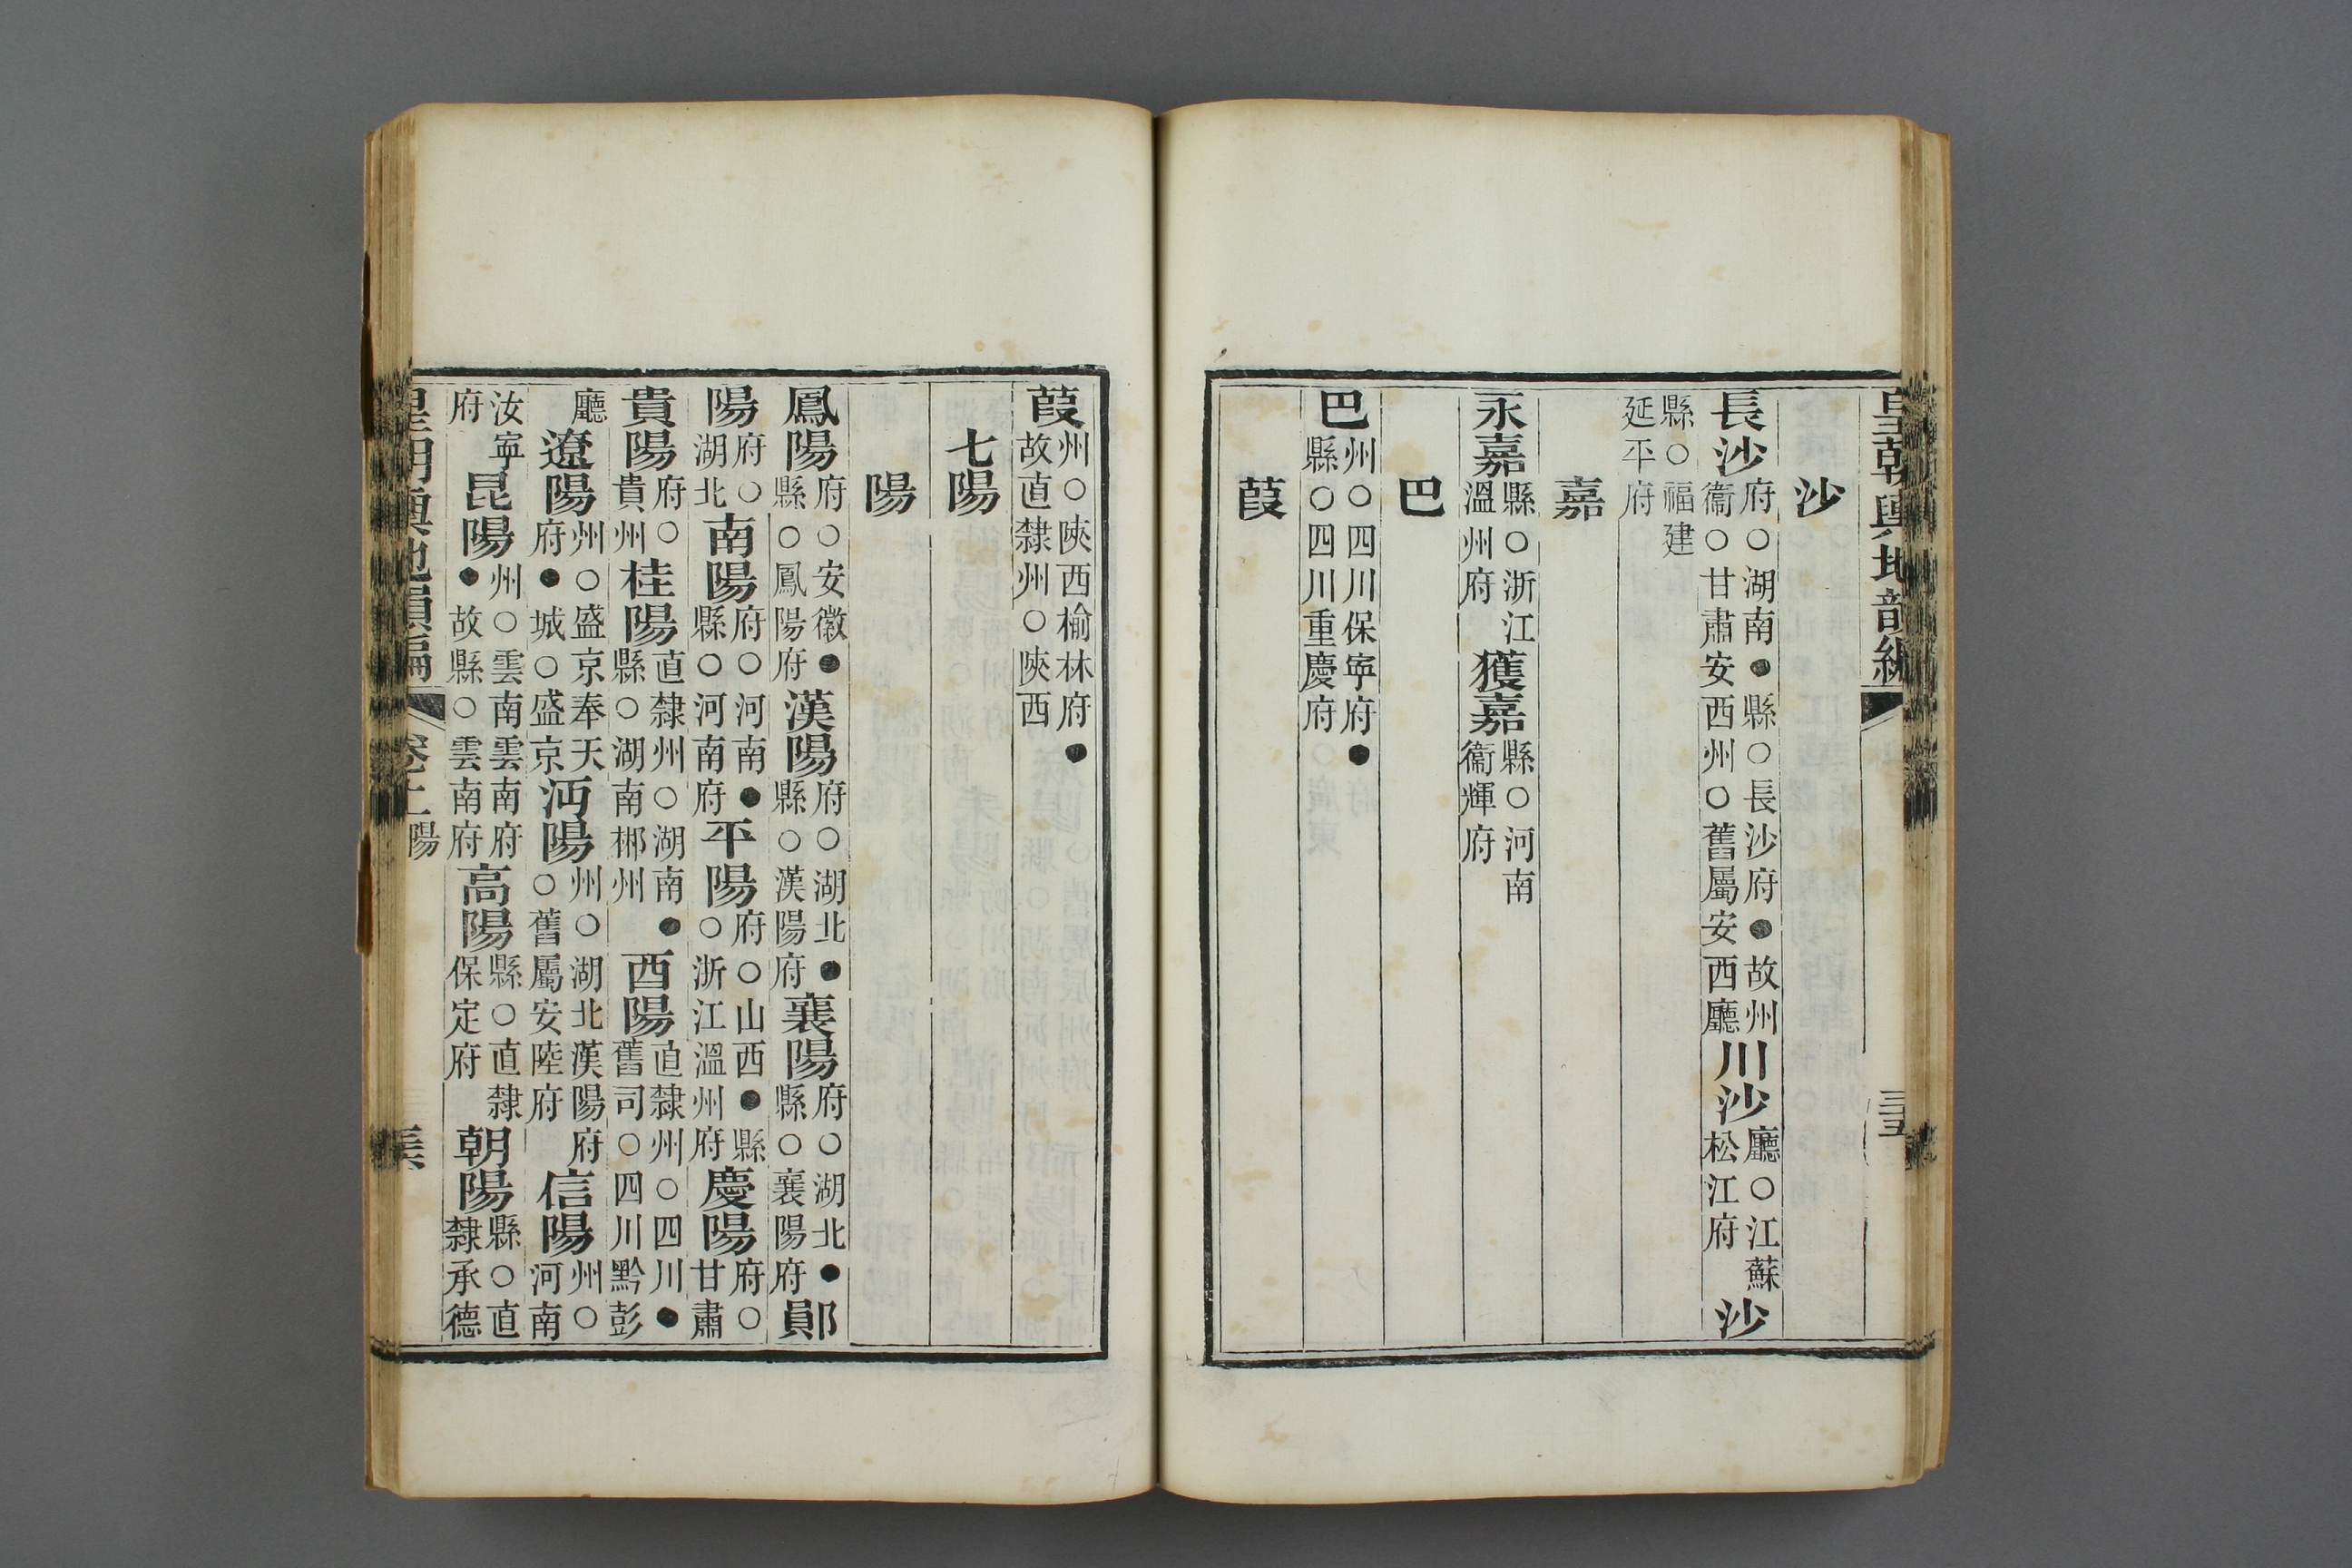 皇朝輿地韻編
三五
沙
長沙府○湖南●縣○長沙府●故州
衞○甘肅安西州○舊屬安西廳川沙廳○江蘇
松江府沙
縣○福建
延平府
嘉
永嘉縣○浙江
溫州府獲嘉縣○河南
衞輝府
巴
巴州○四川保寧府●
縣○四川重慶府
葭
葭州○陝西榆林府●
故直隸州○陝西
七陽
陽
鳳陽府○安徽●
縣○鳳陽府漢陽府○湖北●
縣○漢陽府襄陽府○湖北●
縣○襄陽府鄖
陽府○
湖北南陽府○河南●
縣○河南府平陽府○山西●縣
○浙江溫州府慶陽府○
甘肅
貴陽府○
貴州桂陽直隸州○湖南●
縣○湖南郴州酉陽直隸州○四川●
舊司○四川黔彭
廳遼陽州○盛京奉天
府●城○盛京沔陽州○湖北漢陽府
○舊屬安陸府信陽州○
河南
汝寧
府昆陽州○雲南雲南府
●故縣○雲南府高陽縣○直隸
保定府朝陽縣○直
隸承德
皇朝輿地韻編
卷上
陽